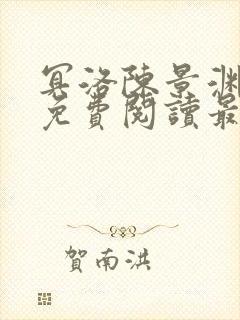 冥洛陳景淵
免費閱讀最
賀南洪